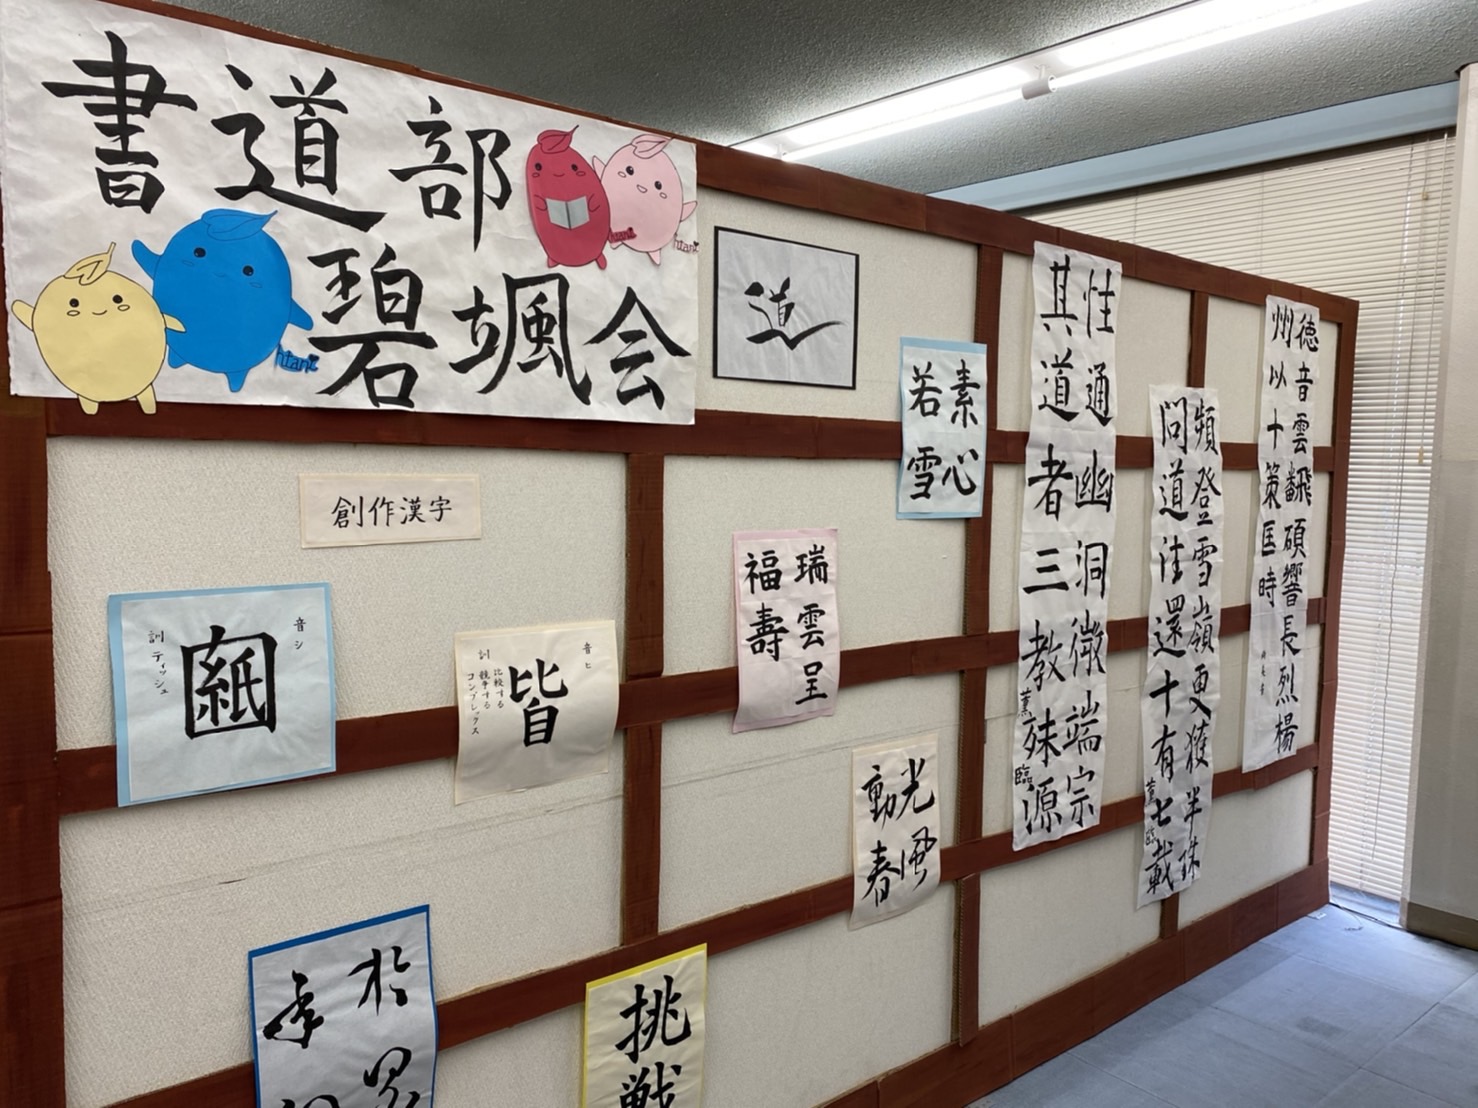 書道部
碧颯会
htani
htani
htani
道
創作漢字
音 シ
訓 ティッシュ
音 ヒ
皆
訓 比較する
競争する
コンプレックス
瑞雲呈
福壽
素心
若雪
光風
動春
挑戦
性通幽洞微端宗
其道者三教殊源
薫臨
頻登雪嶺更獲半珠
問道法還十有七載
徳音雲飜碩響長烈楊
州以十策匡時